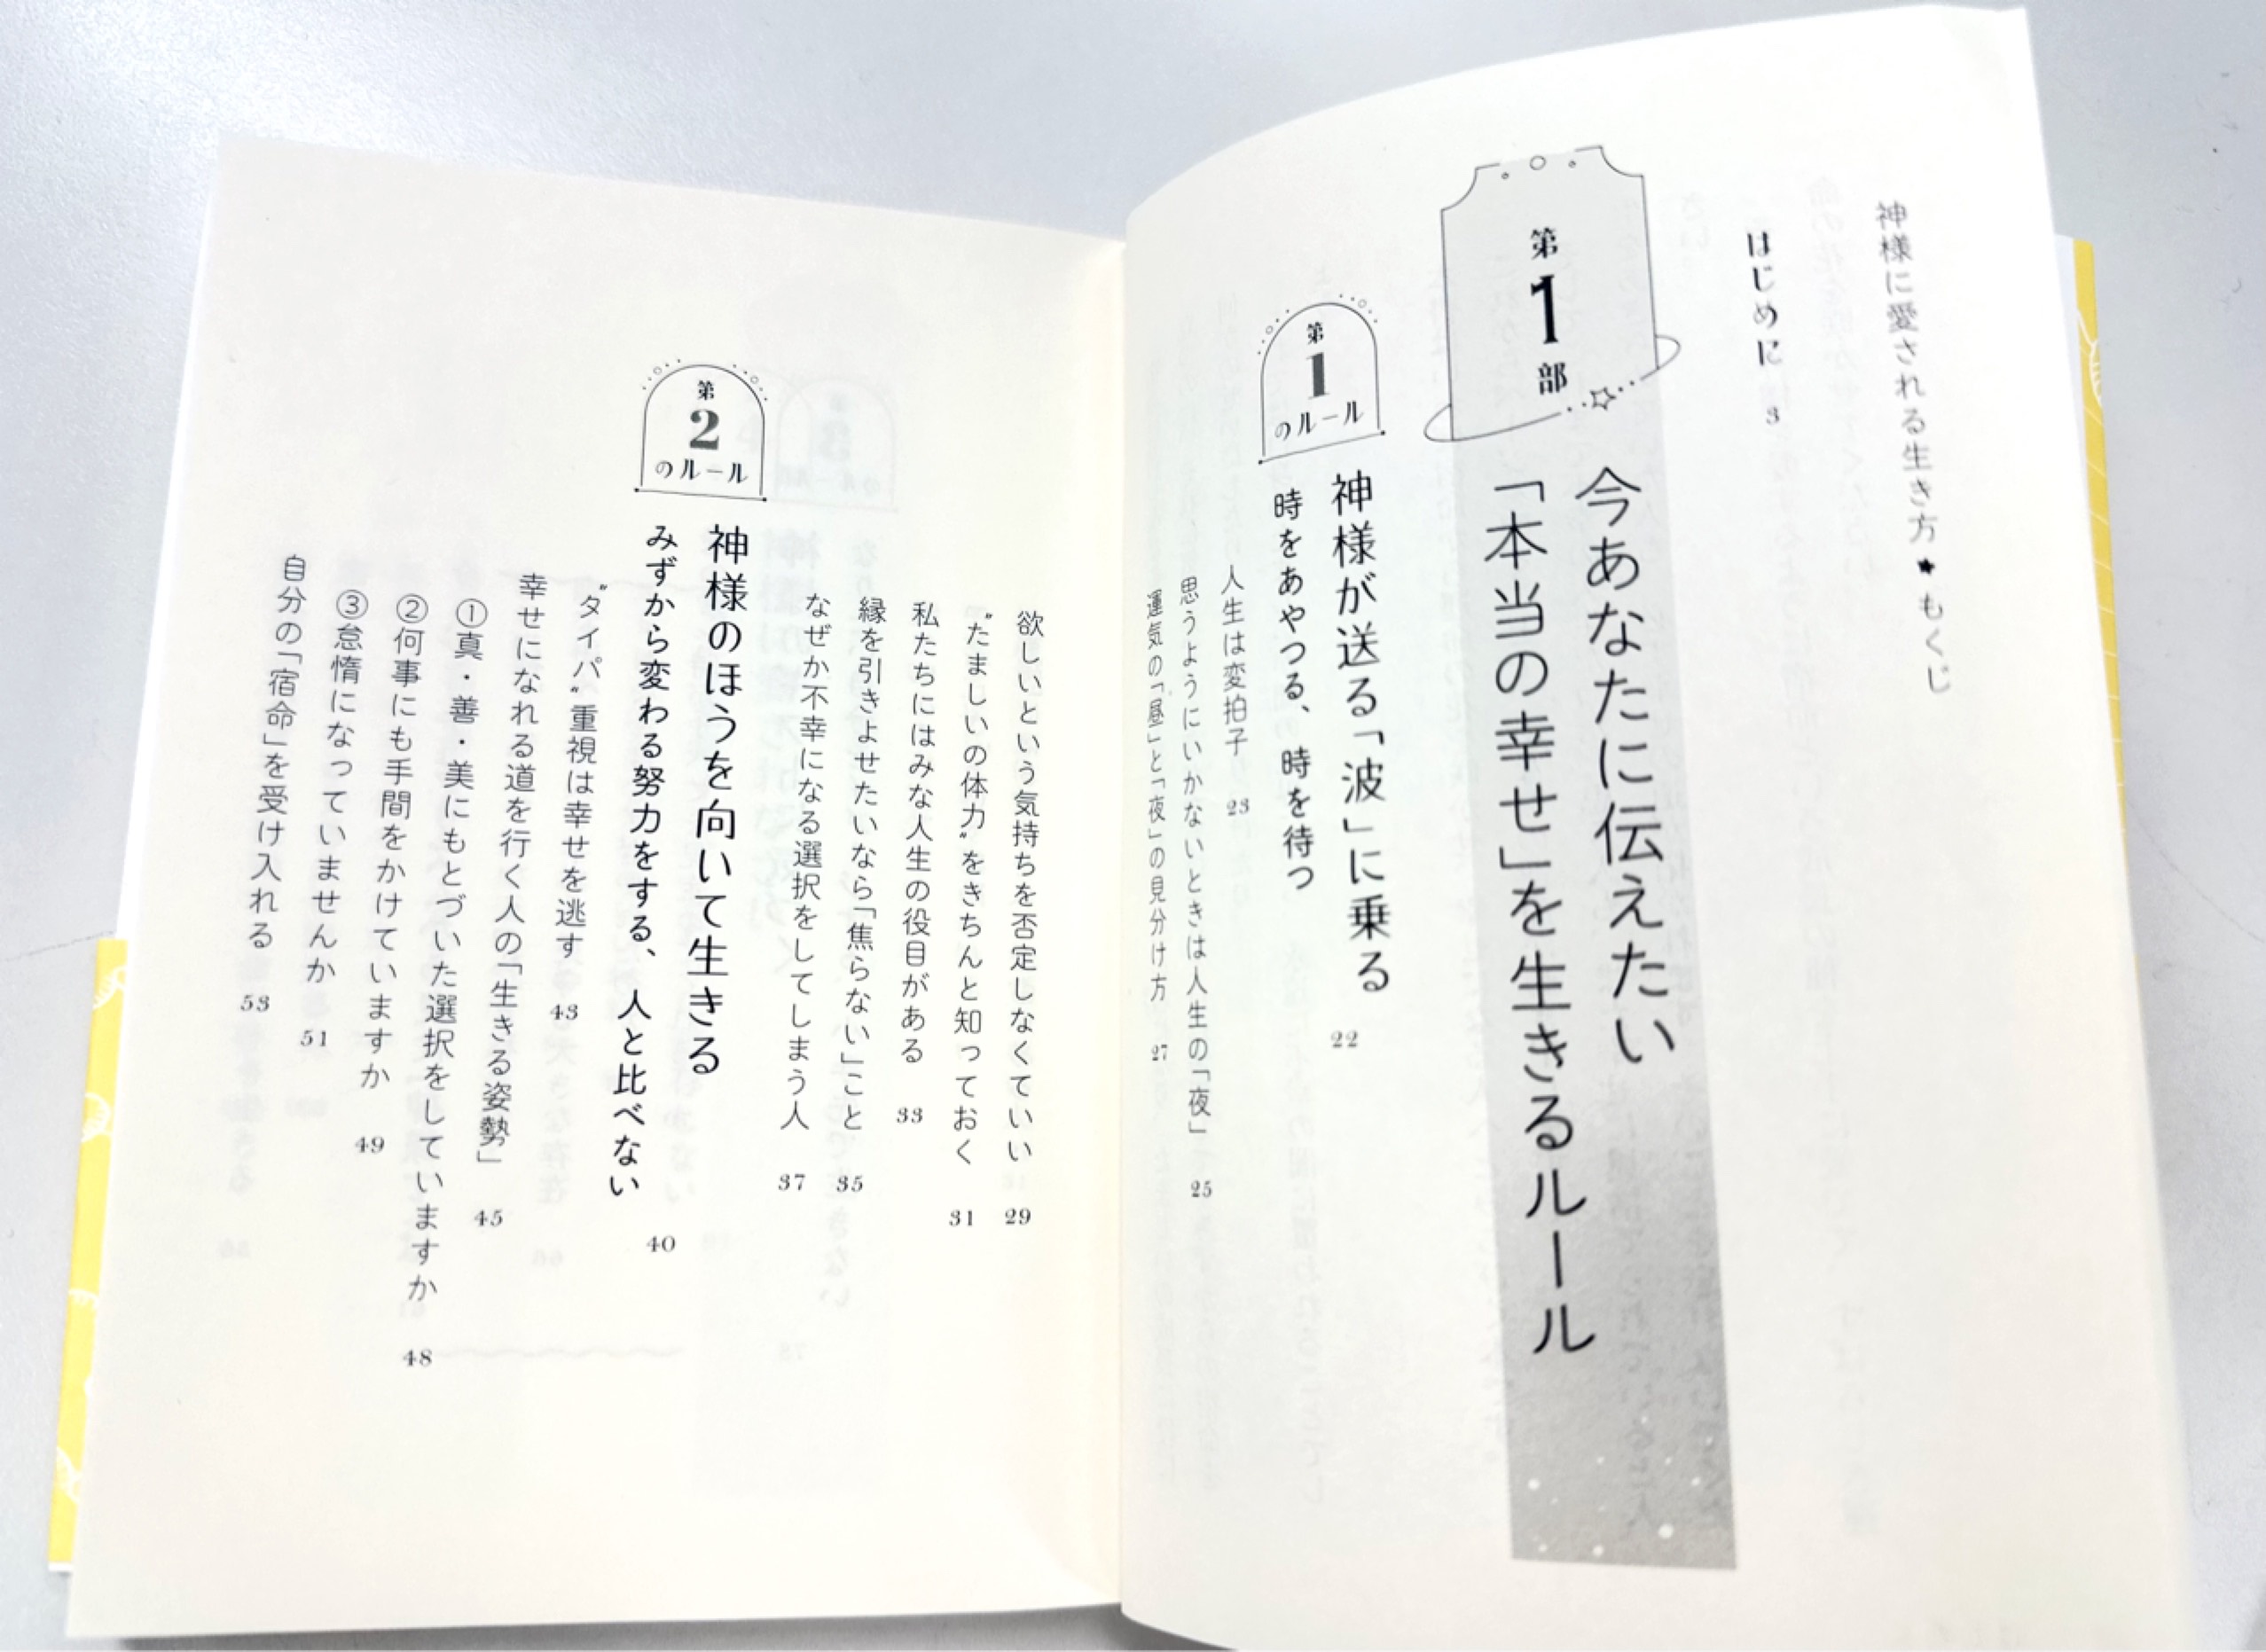 神様に愛される生き方★もくじ
はじめに 3
第1部
今あなたに伝えたい
「本当の幸せ」を生きるルール
第1のルール
神様が送る「波」に乗る 22
時をあやつる、時を待つ
人生は変拍子 23
思うようにいかないときは人生の「夜」 25
運気の「昼」と「夜」の見分け方 27
欲しいという気持ちを否定しなくていい 29
〝たましいの体力〟をきちんと知っておく 31
私たちにはみな人生の役目がある 33
縁を引きよせたいなら「焦らない」こと 35
なぜか不幸になる選択をしてしまう人 37
第2のルール
神様のほうを向いて生きる
みずから変わる努力をする、人と比べない 40
〝タイパ〟重視は幸せを逃す 43
幸せになれる道を行く人の「生きる姿勢」 45
①真・善・美にもとづいた選択をしていますか 48
②何事にも手間をかけていますか 49
③怠惰になっていませんか 51
自分の「宿命」を受け入れる 53